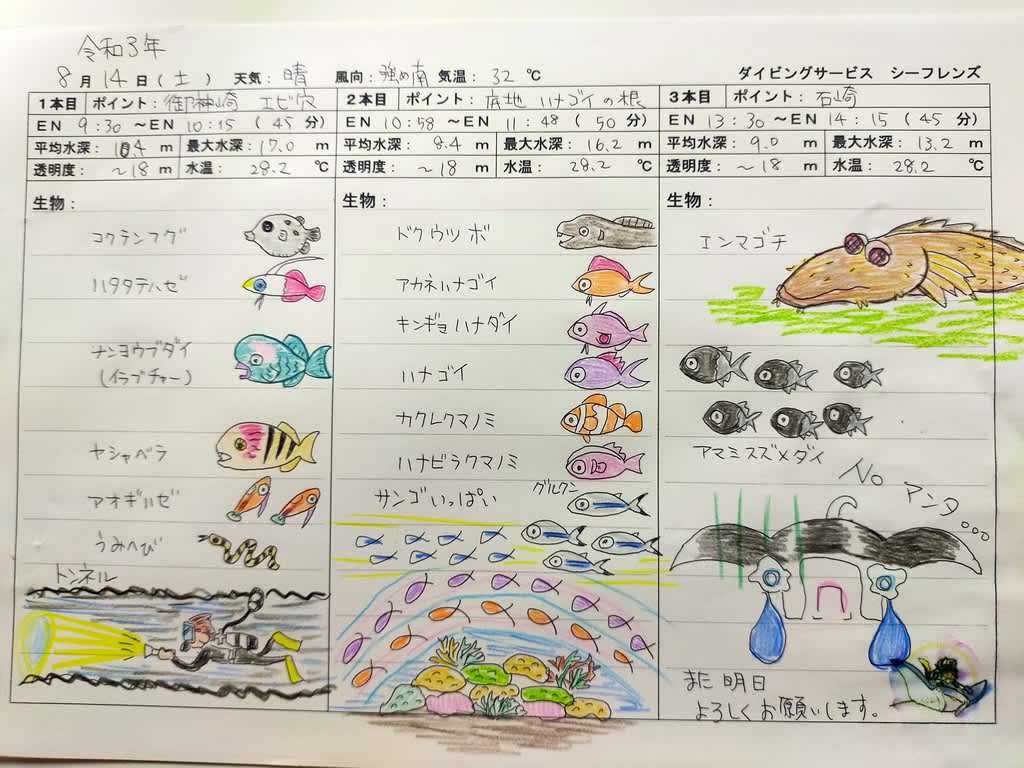 令和3年
8月14日(土) 天気:晴 風向:強め南 気温:32℃ ダイビングサービス シーフレンズ
1本目 ポイント:御神崎 エビ穴
EN 9:30 ～EN 10:15 (45分)
平均水深:10.4m 最大水深:17.0m
透明度:～18m 水温:28.2℃
生物:
コクテンフグ
ハタタテハゼ
ナンヨウブダイ
(イラブチャー)
ヤシャベラ
アオギハゼ
うみへび
トンネル
2本目 ポイント:底地 ハナゴイの根
EN 10:58 ～EN 11:48 (50分)
平均水深:8.4m 最大水深:16.2m
透明度:～18m 水温:28.2℃
生物:
ドクウツボ
アカネハナゴイ
キンギョハナダイ
ハナゴイ
カクレクマノミ
ハナビラクマノミ
サンゴいっぱい
グルクン
3本目 ポイント:石崎
EN 13:30 ～EN 14:15 (45分)
平均水深:9.0m 最大水深:13.2m
透明度:～18m 水温:28.2℃
生物:
エンマゴチ
アマミスズメダイ
No
アンタ
また明日
よろしくお願いします。